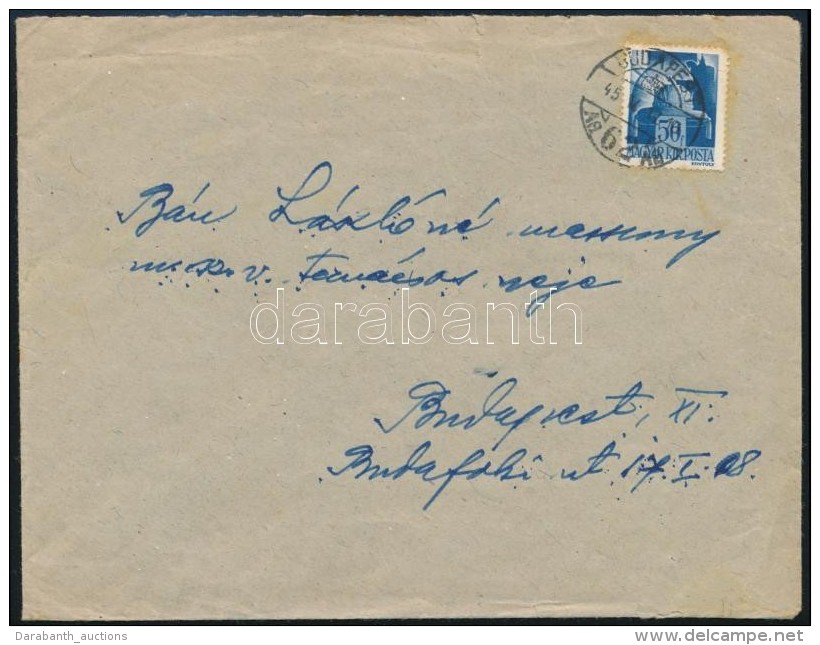 BUDAPEST
45
62
50
MAGYAR KIR. POSTA
Bán Lászlóné
m. kir. v. tanácsos neje
darabanth
Budapest, XI.
Budafoki út 17. I. 08.
Darabanth_auctions
http://www.delcampe.net